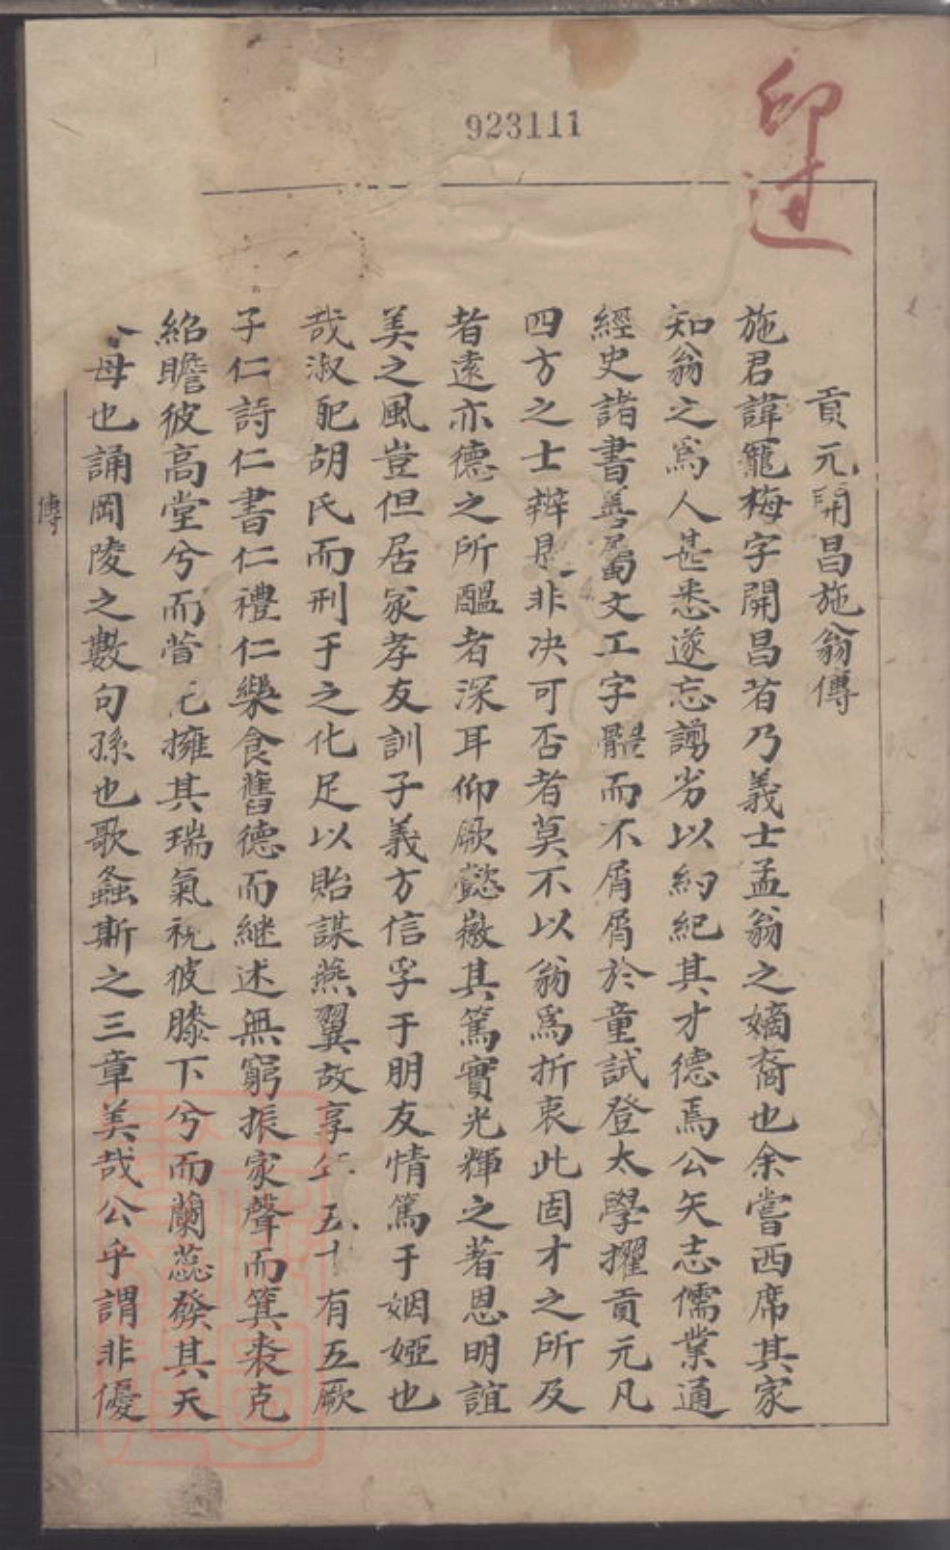 923111
印过
貢元開昌施翁傳
施君諱寵梅字開昌者乃義士孟翁之嫡裔也余嘗西席其家
知翁之為人甚悉遂忘謭劣以約紀其才德焉公矢志儒業通
經史諸書善屬文工字體而不屑屑於童試登太學擢貢元凡
四方之士辯是非决可否者莫不以翁為折衷此固才之所及
者遠亦德之所醞者深耳仰厥懿徽其篤實光輝之著恩明誼
美之風豈但居家孝友訓子義方信孚于朋友情篤于姻婭也
哉淑配胡氏而刑于之化足以貽謀燕翼故享年五十有五厥
子仁詩仁書仁禮仁樂食舊德而繼述無窮振家聲而箕裘克
紹瞻彼高堂兮而萱花擁其瑞氣祝彼膝下兮而蘭蕊發其天
母也誦岡陵之數句孫也歌螽斯之三章美哉公乎謂非優
傳